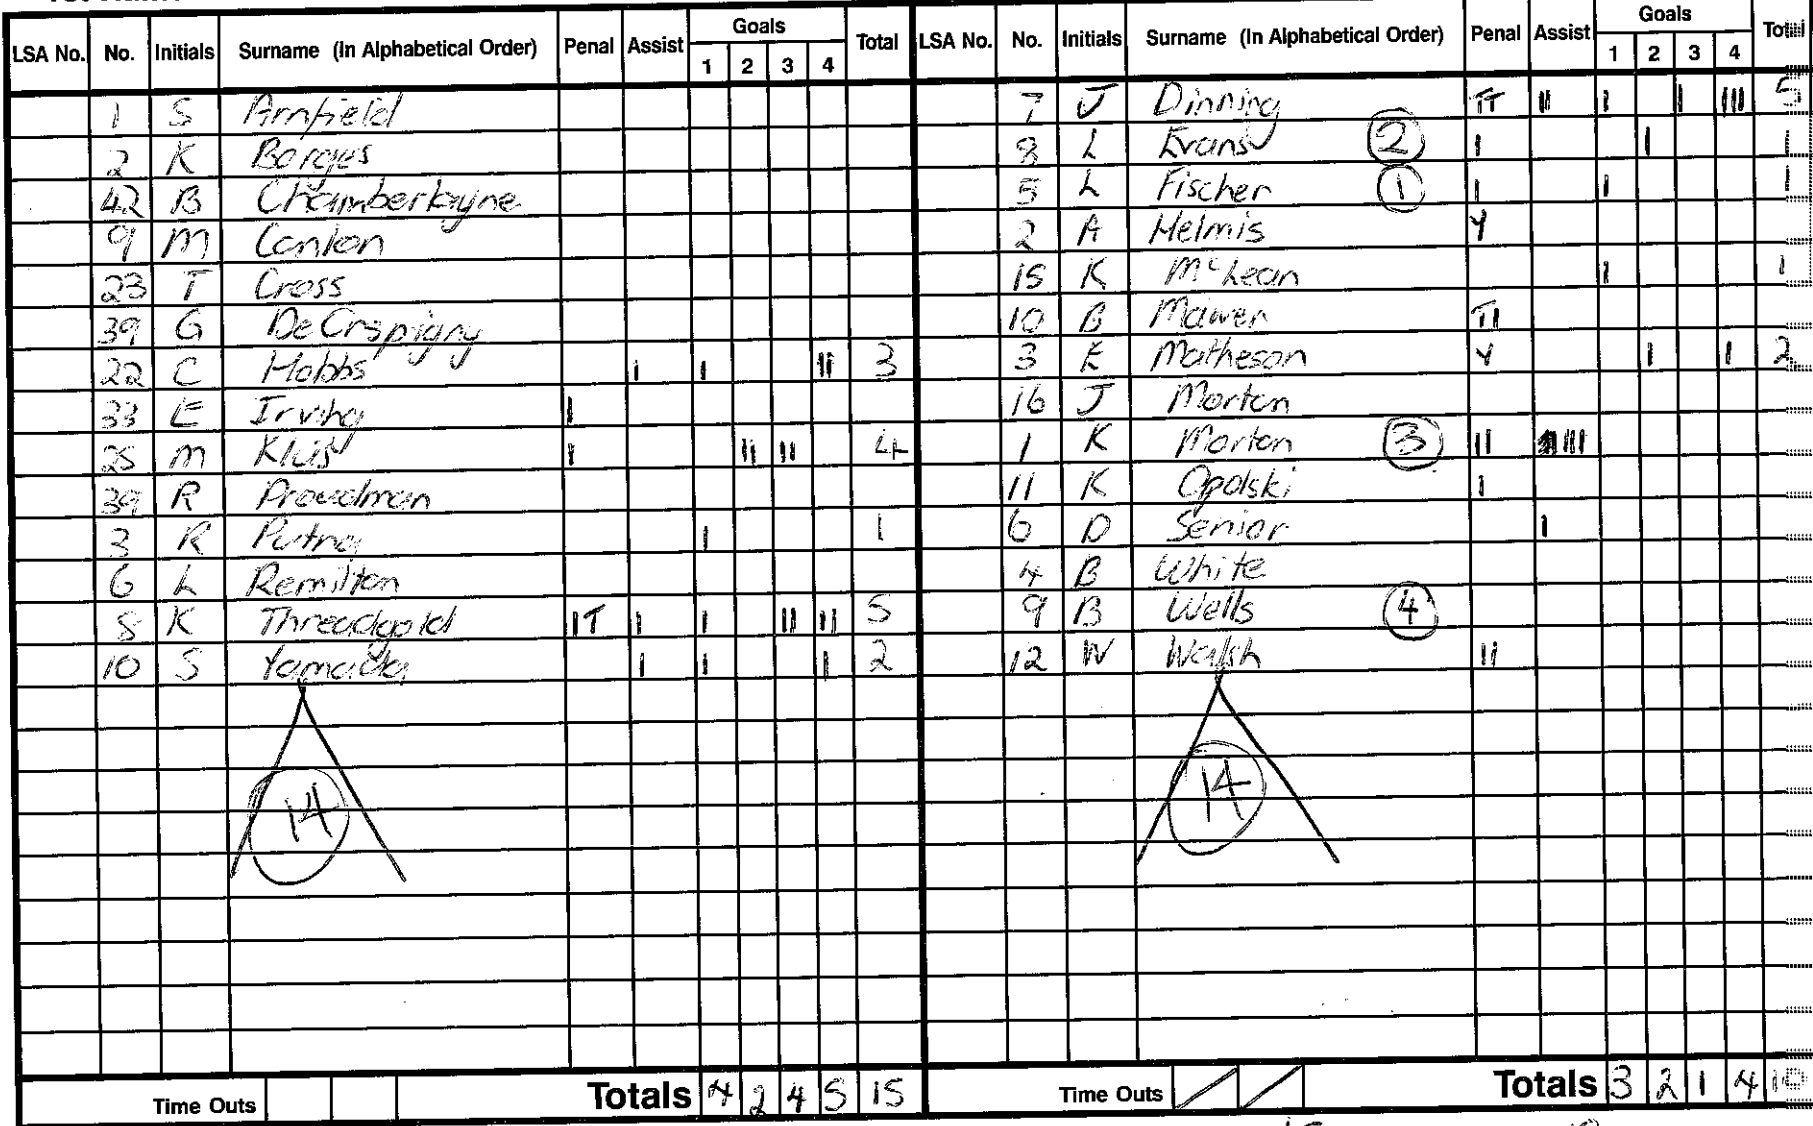 LSA No. No. Initials Surname (In Alphabetical Order) Penal Assist Goals 1 2 3 4 Total
1 S Armfield
2 K Borges
42 B Chamberlayne
9 M Conlon
23 T Cross
39 G De Crspigny
22 C Hobbs I I II 3
33 E Irving I
25 M Klus I II II 4
39 R Proudman
3 R Putna I 1
6 L Remilton
8 K Threadgold IT I I II II 5
10 S Yamada I I I 2
14
Time Outs Totals 4 2 4 5 15
LSA No. No. Initials Surname (In Alphabetical Order) Penal Assist Goals 1 2 3 4 Total
7 J Dinning TT II I I III 5
8 L Evans 2 I I 1
5 L Fischer 1 I I 1
2 A Helmis Y
15 K McLean I 1
10 B Mawer TI
3 E Matheson Y I I 2
16 J Morton
1 K Morton 3 II III
11 K Opolski I
6 D Senior I
4 B White
9 B Wells 4
12 W Walsh II
14
Time Outs / / Totals 3 2 1 4 10